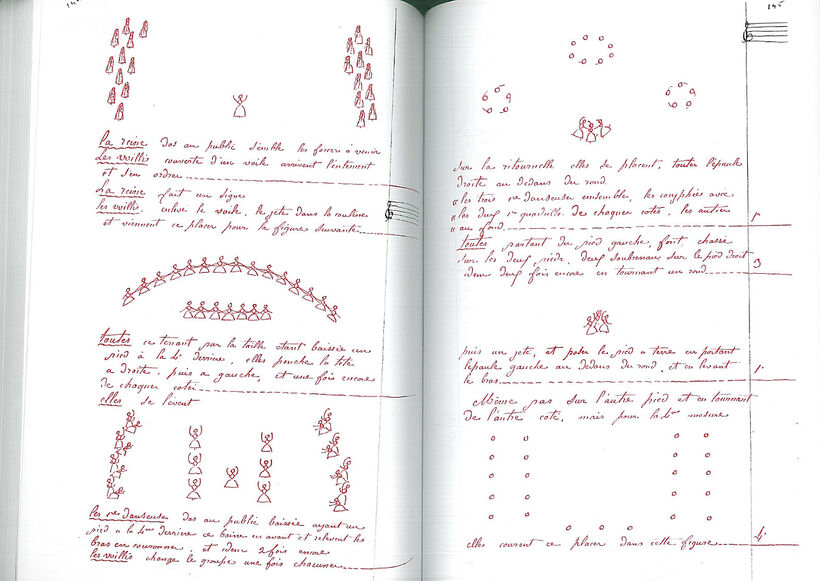 La reine dos au public semble les forcer à venir
Les willis couverte d'un voile arrivent lentement
et sen ordre
La reine fait un signe
les willis, enlève le voile, le jete dans la couline
et viennent ce placer pour la figure suivante
toutes ce tenant par la taille étant baissée un
pied à la 4e derrière, elles penche la tête
a droite, puis a gauche, et une fois encore
de chaquer coté
elles se levent
les 1re danseuse dos au public baissée ayant un
pied a la 4me derrière ce baisse en avant et relevent les
bras en couronne, et idem 2 fois encore
les willis change le groupe une fois chacune
145
Sur la ritournelle elles se placent, toutes l'épaule
droite au dedans du rond.
"les trois 1re danseuse ensemble, les coryphée avec
"les deux 1r quadrille de chaquer cotés, les autres
"au fond
1.
toutes partant du pied gauche, font, chassé
sur les deux pieds, deux soubresaux sur le pied droit
idem deux fois encore en tournant un rond
3
puis un jeté, et poser le pied a terre en portant
l'epaule gauche au dedans du rond, et en levant
le bras
1.
Même pas sur l'autre pied et en tournant
de l'autre coté, mais pour la 4me mesure
elles courent ce placer dans cette figure
4.